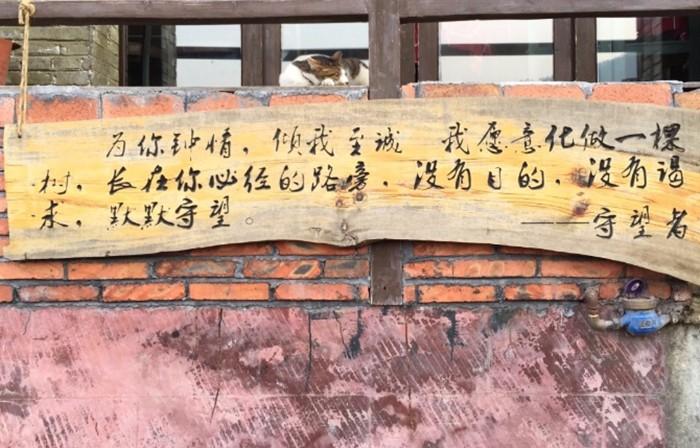 为你钟情，倾我至诚 我愿意化做一棵
树，长在你必经的路旁，没有目的，没有谒
求，默默守望。 ——守望者